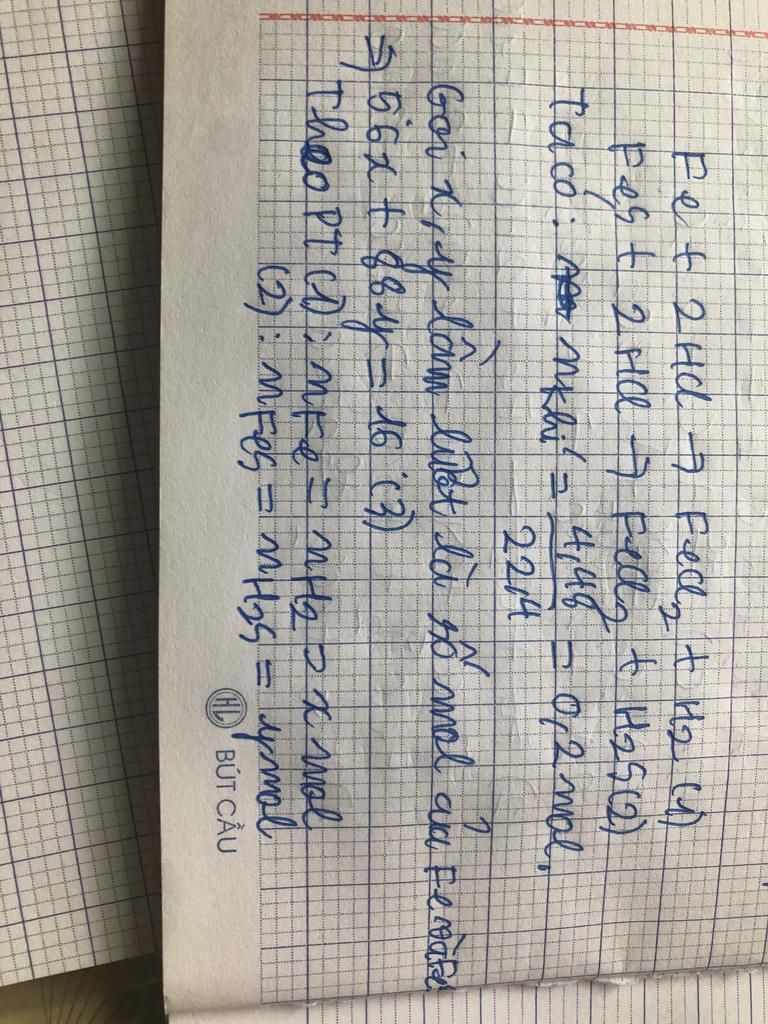 Fe + 2HCl → FeCl2 + H2 (1)
FeS + 2HCl → FeCl2 + H2S (2)
Ta có: nkhí = 4,48 = 0,2 mol.
22,4
Gọi x, y lần lượt là số mol của Fe và Fe
=> 56x + 88y = 16 (3)
Theo PT (1): nFe = nH2 = x mol
(2): nFeS = nH2S = y mol
HL BÚT CẦU